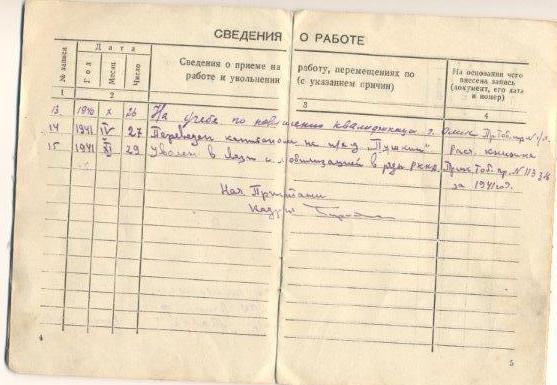 СВЕДЕНИЯ О РАБОТЕ
№ записи
Дата
Год
Месяц
Число
Сведения о приеме на работу, перемещениях по
работе и увольнении (с указанием причин)
На основании чего
внесена запись
(документ, его дата
и номер)
1 2 3 4
13 1940 X 26 На учебе по повышению квалификации г. Омск
14 1941 IV 27 Переведен капитаном на "Пушкин"
15 1941 XI 29 Уволен в связи с мобилизацией в ряды РККА. пр. N 113
за 1941 г.
Нач. Пристани
Кадры
4
5